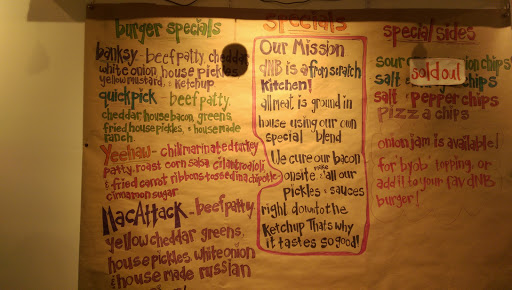 burger specials
banksy - beef patty, cheddar
white onion, house pickles
yellow mustard, & ketchup
quick pick - beef patty,
cheddar house bacon, greens,
fried house pickles, & house made
ranch.
Yeehaw - chili marinated turkey
patty, roast corn salsa cilantro aioli
& fried carrot ribbons tossed in a chipotle
cinnamon sugar
MacAttack - beef patty
yellow cheddar greens,
house pickles, white onion
& house made russian
specials
Our Mission
dNB is a from scratch
Kitchen!
all meat is ground in
house using our own
special blend
We cure our bacon
onsite & make all our
pickles & sauces
right down to the
Ketchup Thats why
it tastes so good!
special sides
sour onion chips
salt chips
sold out
salt & pepper chips
pizza chips
onion jam is available!
for 'byob' topping, or
add it to your fav dNB
burger!